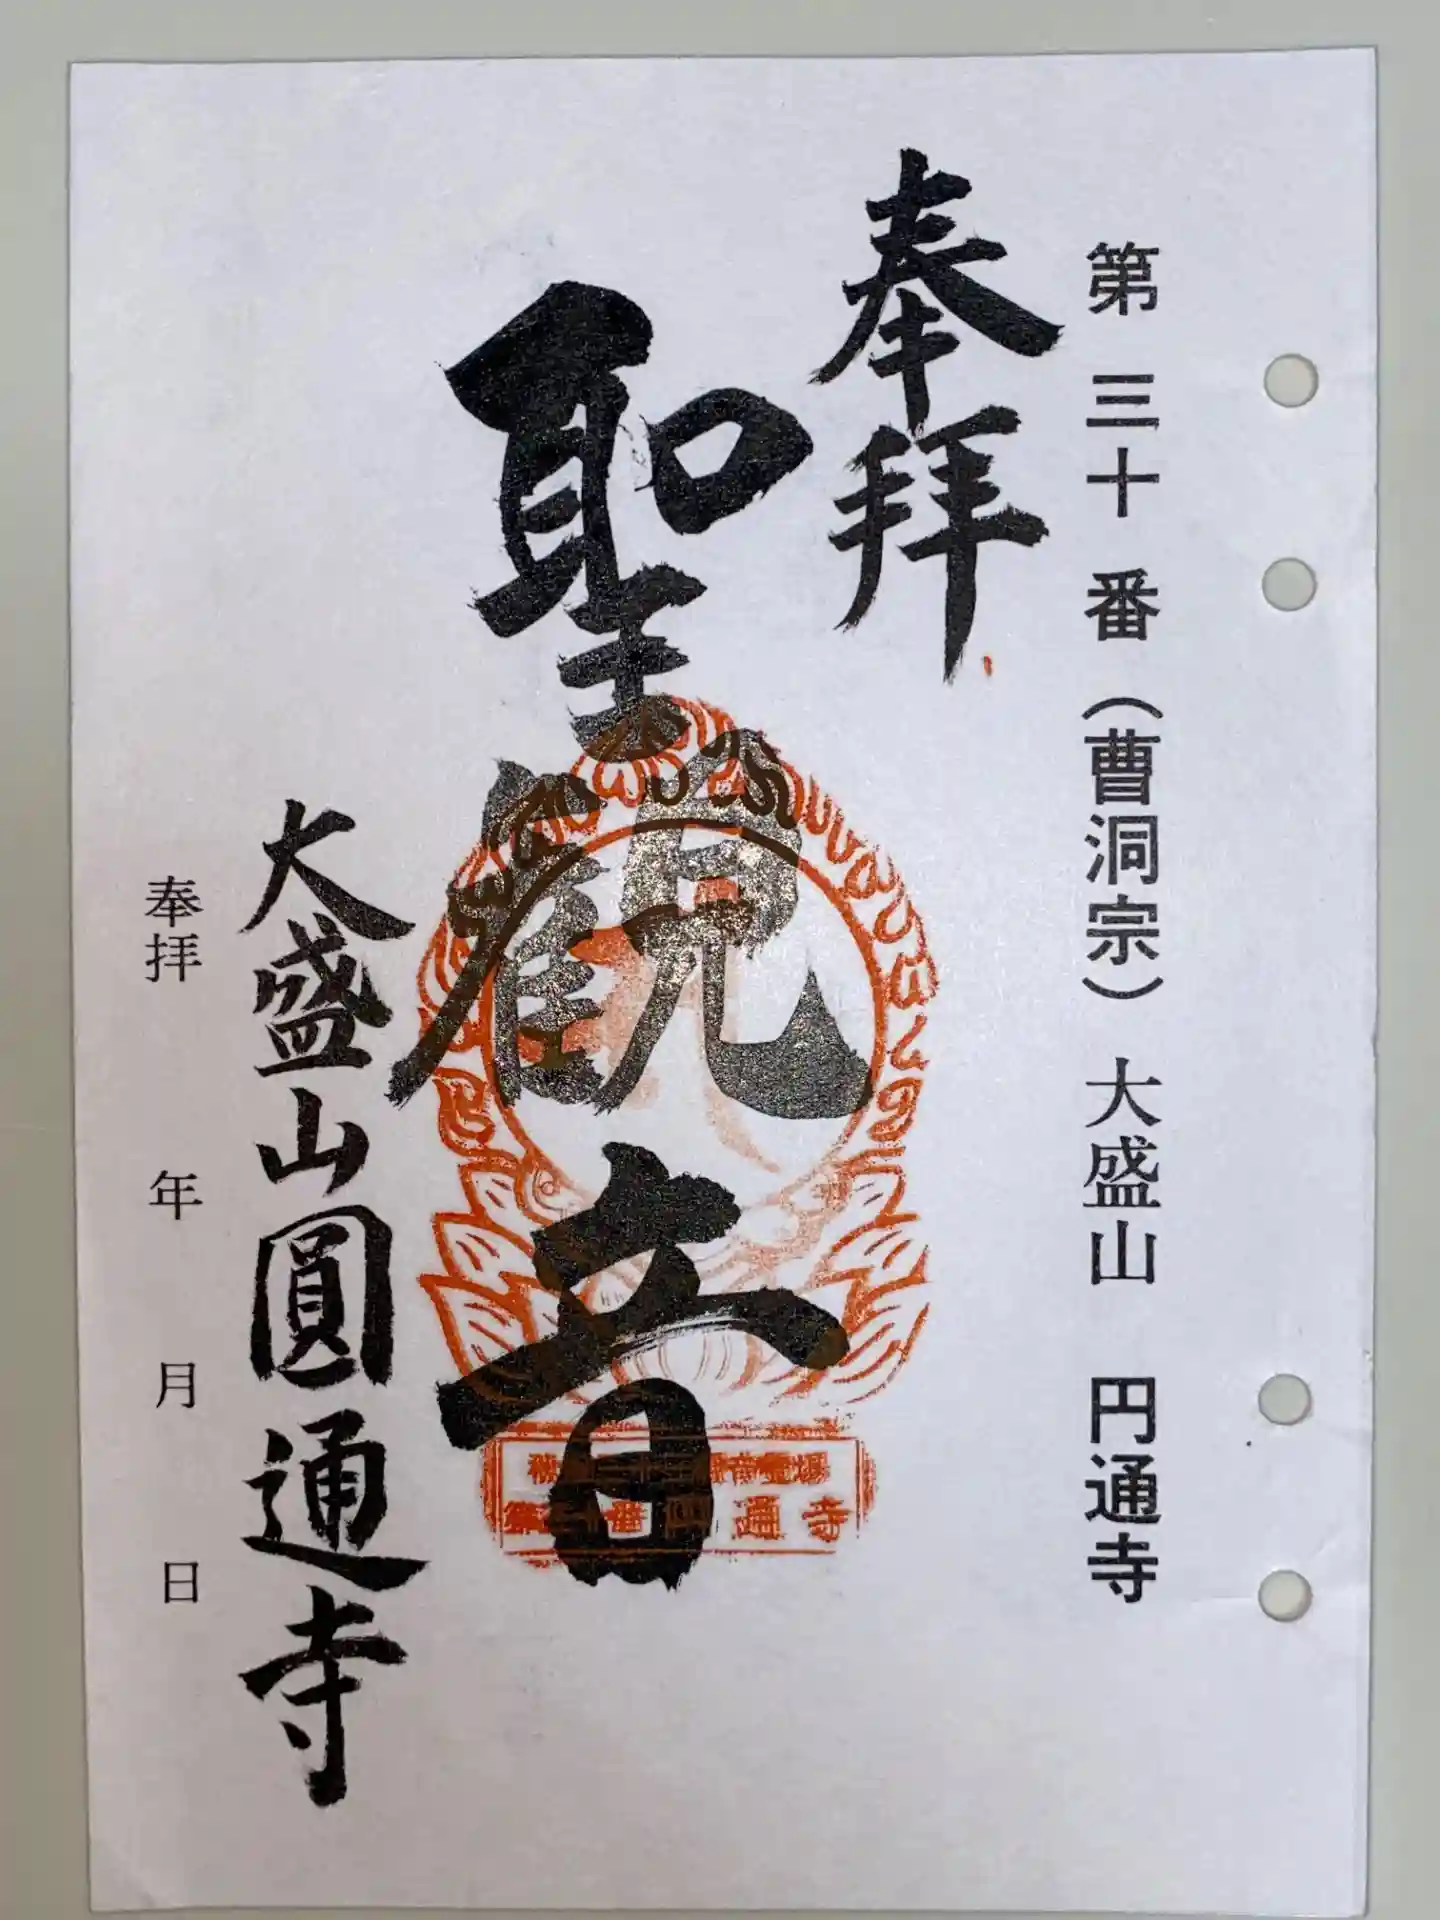 第三十番（曹洞宗）大盛山 円通寺
奉拝
聖観音
通寺
大盛山圓通寺
奉拝 年 月 日